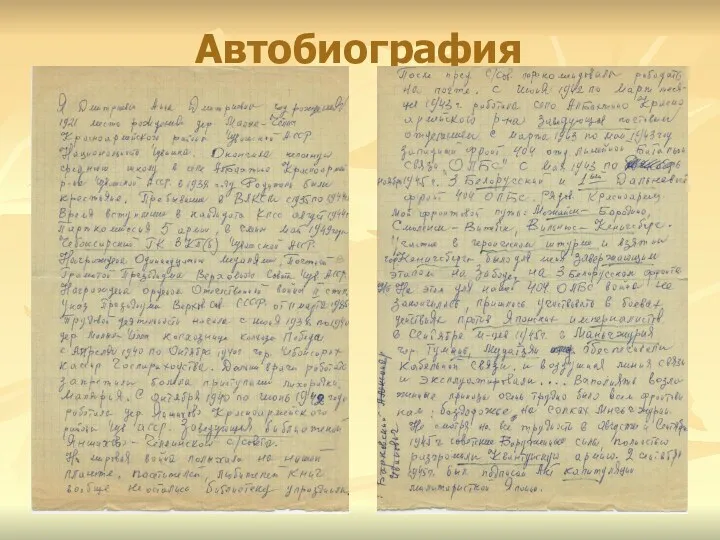 Автобиография
Я Дмитриева Анна Дмитриевна год рождения
1921 место рождения дер
Красноармейский район Чувашской АССР
Национальность Чувашка. Окончила неполную
среднюю школу в селе Красноармей
р-на Чувашской АССР в 1938 году Родители были
крестьяне. Пребывание в ВЛКСМ с 1936 по 1944
Время вступления в кандидаты КПСС август 1944г
парткомиссия 5 армии, в члены май 1949
Чебоксарский ГК ВКП(б) Чувашской АССР.
Награждена Одиннадцатью медалями
Грамотой Президиума Верховного Совета Чув АССР.
Награждена орденом Отечественной войны II степ.
Указ Президиума Верхов Сов СССР от 11 марта 1985
Трудовая деятельность начала с июля 1938 по 1940
дер колхоз Победа
с Апреля 1940 по Октябрь 1940г гор Чебоксарах
кассир Дальше врачи работать
запретили болела приступами лихорадка,
Малярия. С Октября 1940 по июнь 1942 года
работала дер Красноармейского
района Чув АССР. Заведующая библиотекой
с/совета.
Но мировая война повлияла на нашей
планете, посетителей, любителей книг
вообще не осталось библиотеку упразднили
После пред с/сов. порекомендовали работать
на почте. с июля 1942 по март меся-
ца 1943г. работала село Красно
армейского р-на Заведующая почтовым
отделением с марта 1943 по май 1943 году
западный фронт 404 отд линейный Батальон
Связи „ОЛБС" С мая 1943 по
ноября 1945г. 3 Белорусский 1ый Дальневост
фронт 404 ОЛБС. Рядов. Красноармеец.
Мой фронтовой путь: Можайск - Бородино,
Смоленск - Витебск, Вильнюс - Кенигсберг.
Участие в героическом штурме и взятии
гор Кенигсберга был для меня завершающим
этапом на Западе, на 3 Белорусском фронте
Но На этом для нашей 404 ОЛБС война не
закончилась, пришлось участвовать в боевых
действиях против Японских империалистов
в Сентябре м-це 1945г. в Маньчжурии
гор обеспечивали
Кабельной связи. и воздушная линия связи
и эксплуатировали.... Выполнять возло
женные приказы очень трудно было всем фронтови
кам: бездорожье, на сопках Маньчжурии.
Не смотря на все трудности в Августе и Сентябре
1945г. советские Вооруженные силы полностью
разгромили Квантунскую армию. 2 сентября
1945г. был подписан Акт капитуляции
милитаристской Японии.